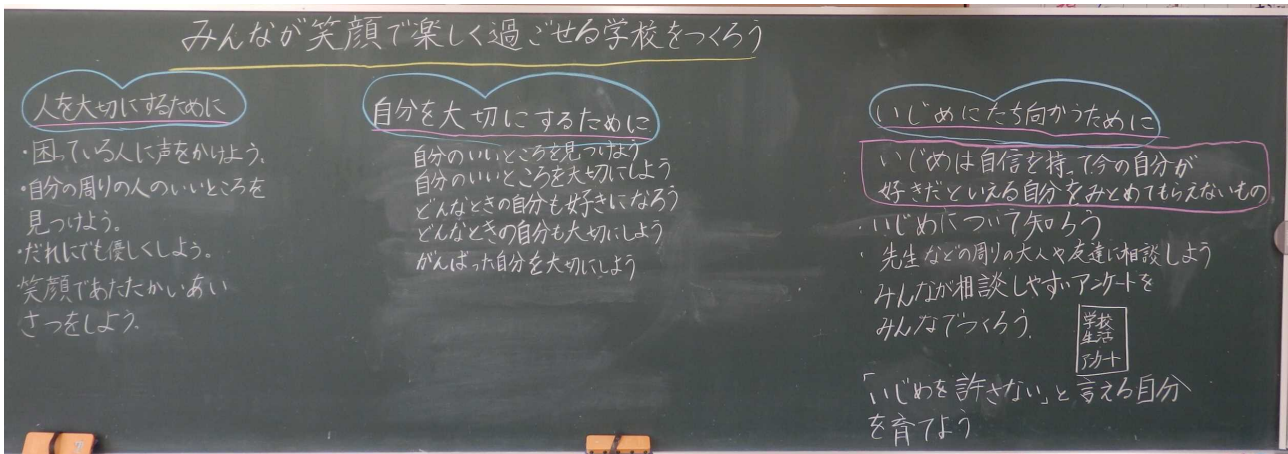 みんなが笑顔で楽しく過ごせる学校をつくろう
人を大切にするために
・困っている人に声をかけよう。
・自分の周りの人のいいところを
見つけよう。
・だれにでも優しくしよう。
笑顔であたたかいあい
さつをしよう。
自分を大切にするために
自分のいいところを見つけよう
自分のいいところを大切にしよう
どんなときの自分も好きになろう
どんなときの自分も大切にしよう
がんばった自分を大切にしよう
いじめにたち向かうために
いじめは自信を持って今の自分が
好きだといえる自分をみとめてもらえないもの
・いじめについて知ろう
・先生などの周りの大人や友達に相談しよう
・みんなが相談しやすいアンケートを
みんなでつくろう。
学校
生活
アンケート
「いじめを許さない」と言える自分
を育てよう